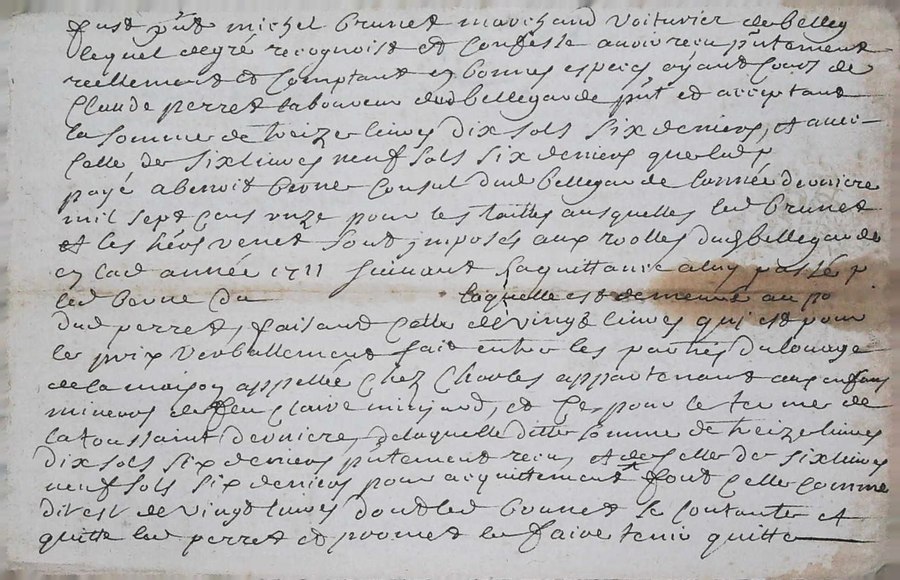 fust pnt michel Brunet marchand voiturier de belley
lequel de gré recognoist et confesse avoir reçu pntement
reellement et comptant en bonnes especes ayant cours de
Claude perret laboureur dud bellegarde pnt et acceptant
la somme de treize livres dix sols six deniers, et avec
celle de six livres neuf sols six deniers que led p
payé a benoit berne Consul dud bellegarde lannée derniere
mil sept cens unze pour les tailles ausquelles led Brunet
et les heors venet sont imposés aux rolles dud bellegarde
en lad année 1711 suivant la quittance a luy passée p
led berne du laquelle est demeuré au po
dud perret, faisant celle de vingt livres qui est pour
le prix verballement fait entre les parties du louage
de la maison appellée Chez Charles appartenant aux enfans
mineurs de feu Claire minjard, et ce pour le terme de
la toussaint derniere, de laquelle ditte somme de treize livres
dix sols six deniers pntement reçu, et de celle de six livres
neuf sols six deniers pour acquittement font celle comme
dit est de vingt livres dont led brunet se contante et
quitte led perret et promet le faire tenir quitte